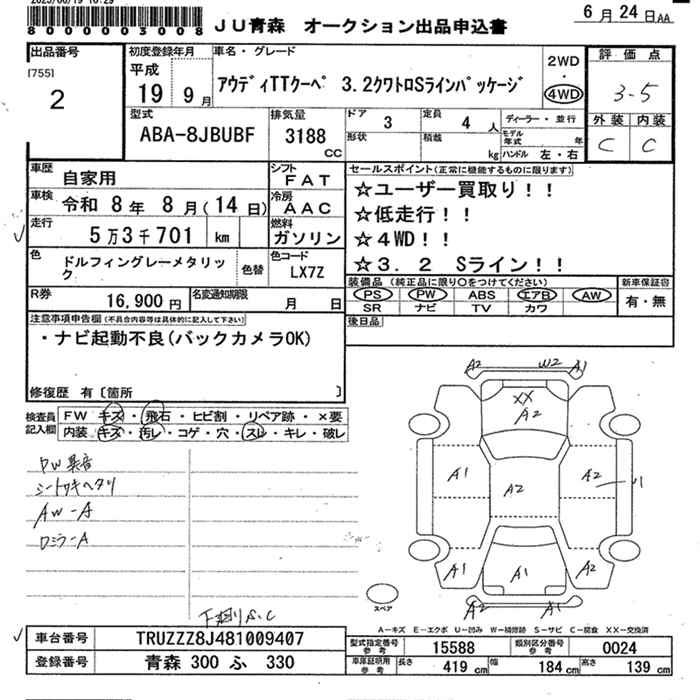 2025/06/19 16:29
8000003008
JU青森 オークション出品申込書
6月24日AA
出品番号
[755]
2
初度登録年月
平成
19 9月
車名・グレード
アウディTTクーペ 3.2クワトロSラインパッケージ
2WD
・
4WD
評価点
3-5
外装 内装
C C
型式
ABA-8JBUBF
排気量
3188
cc
ドア 3
形状
定員 4 人
積載 kg
ディーラー・並行
モデル年式 年
ハンドル 左・右
車歴
自家用
シフト
FAT
車検
令和 8年 8月(14日)
冷房
AAC
走行
5万3千701 km
燃料
ガソリン
色
ドルフィングレーメタリック
色替
色コード
LX7Z
R券
16,900円
名変通知期限
月 日
セールスポイント(正常に機能するものに限ります)
☆ユーザー買取り!!
☆低走行!!
☆4WD!!
☆3.2 Sライン!!
装備品(純正品に限り○をつけてください)
PS PW ABS エアB AW
SR ナビ TV カワ
新車保証書
有・無
後日品
注意事項申告欄(不具合内容等は具体的に記入して下さい)
・ナビ起動不良(バックカメラOK)
修復歴 有〔箇所 〕
検査員
記入欄
FW キズ・飛石・ヒビ割・リペア跡・×要
内装 キズ・汚レ・コゲ・穴・スレ・キレ・破レ
PW異音
シートワキヘタリ
AW-A
ロミラーA
下廻りS.C
A2 W2 A1
XX
A2
A1 A2 A2 U
A2 A1 A2
A2 A2
スペア
A-キズ E-エクボ U-凹み W-補修跡 S-サビ C-腐食 XX-交換済
車台番号
TRUZZZ8J481009407
登録番号
青森 300 ふ 330
型式指定番号
参考
15588
類別区分番号
参考
0024
車庫証明用
参考
長さ 419cm
幅 184cm
高さ 139cm